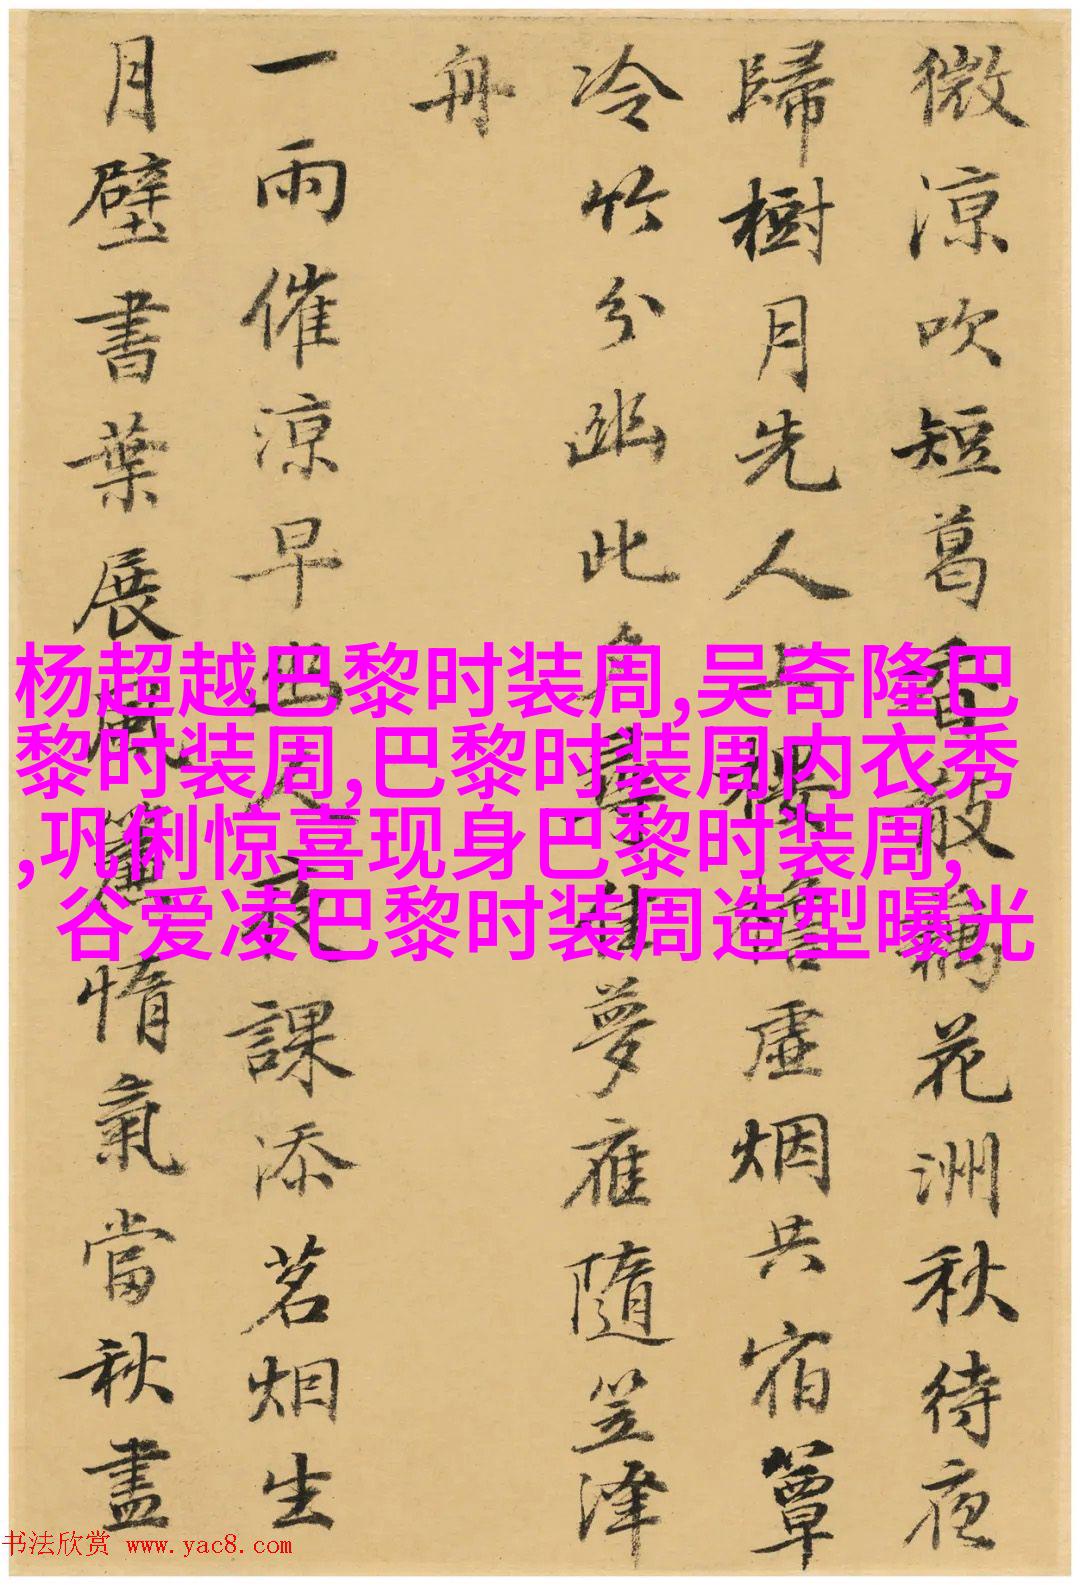 微涼吹短葛香散藕花洲秋待夜
歸樹月先人上樓檐虛烟共宿簟
冷竹分幽此夕尋佳夢隨笠澤
舟
一雨催涼早幽人夜課添茗烟生
月壁書葉展風惰氣當秋盡
杨超越巴黎时装周,吴奇隆巴
黎时装周,巴黎时装周内衣秀
,巩俐惊喜现身巴黎时装周,
谷爱凌巴黎时装周造型曝光
书法欣赏 www.yac8.com